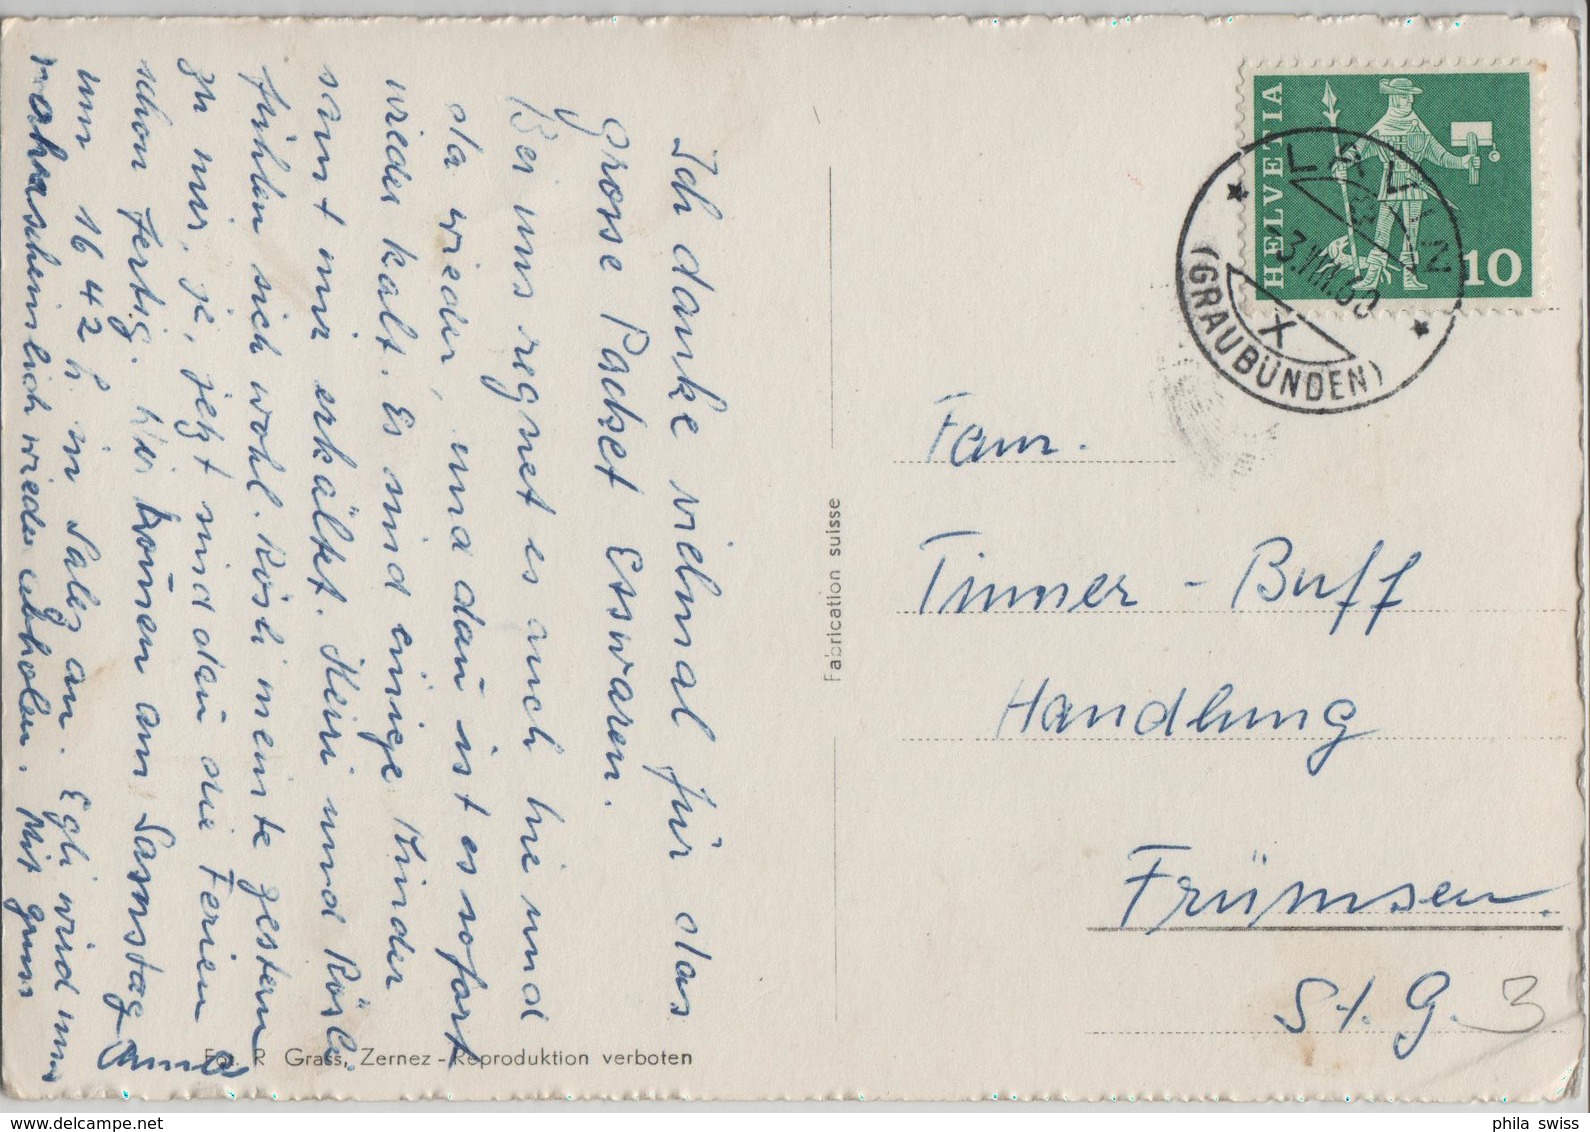 Ich danke vielmal für das
grosse Packet Esswaren.
Bei uns regnet es auch hie und
da wieder, und dan̄ ist es sofort
wieder kalt. Es sind einige Kinder
samt mir erkältet. Heiri und Rösli
fühlen sich wohl. Rösli meinte gestern
zu mir, je, jetzt sind dan̄ die Ferien
schon fertig. Wir kom̄en am Samstag
um 16 42 h in Salez an. Egli wird uns
wahrscheinlich wieder abholen. Mit gruss
Anna
HELVETIA
10
LAVIN
3.VIII.60
X
(GRAUBÜNDEN)
Fam.
Tinner - Buff
Handlung
Frümsen.
St. G.
3
Fabrication suisse
Fot. R. Grass, Zernez - Reproduktion verboten
phila swiss